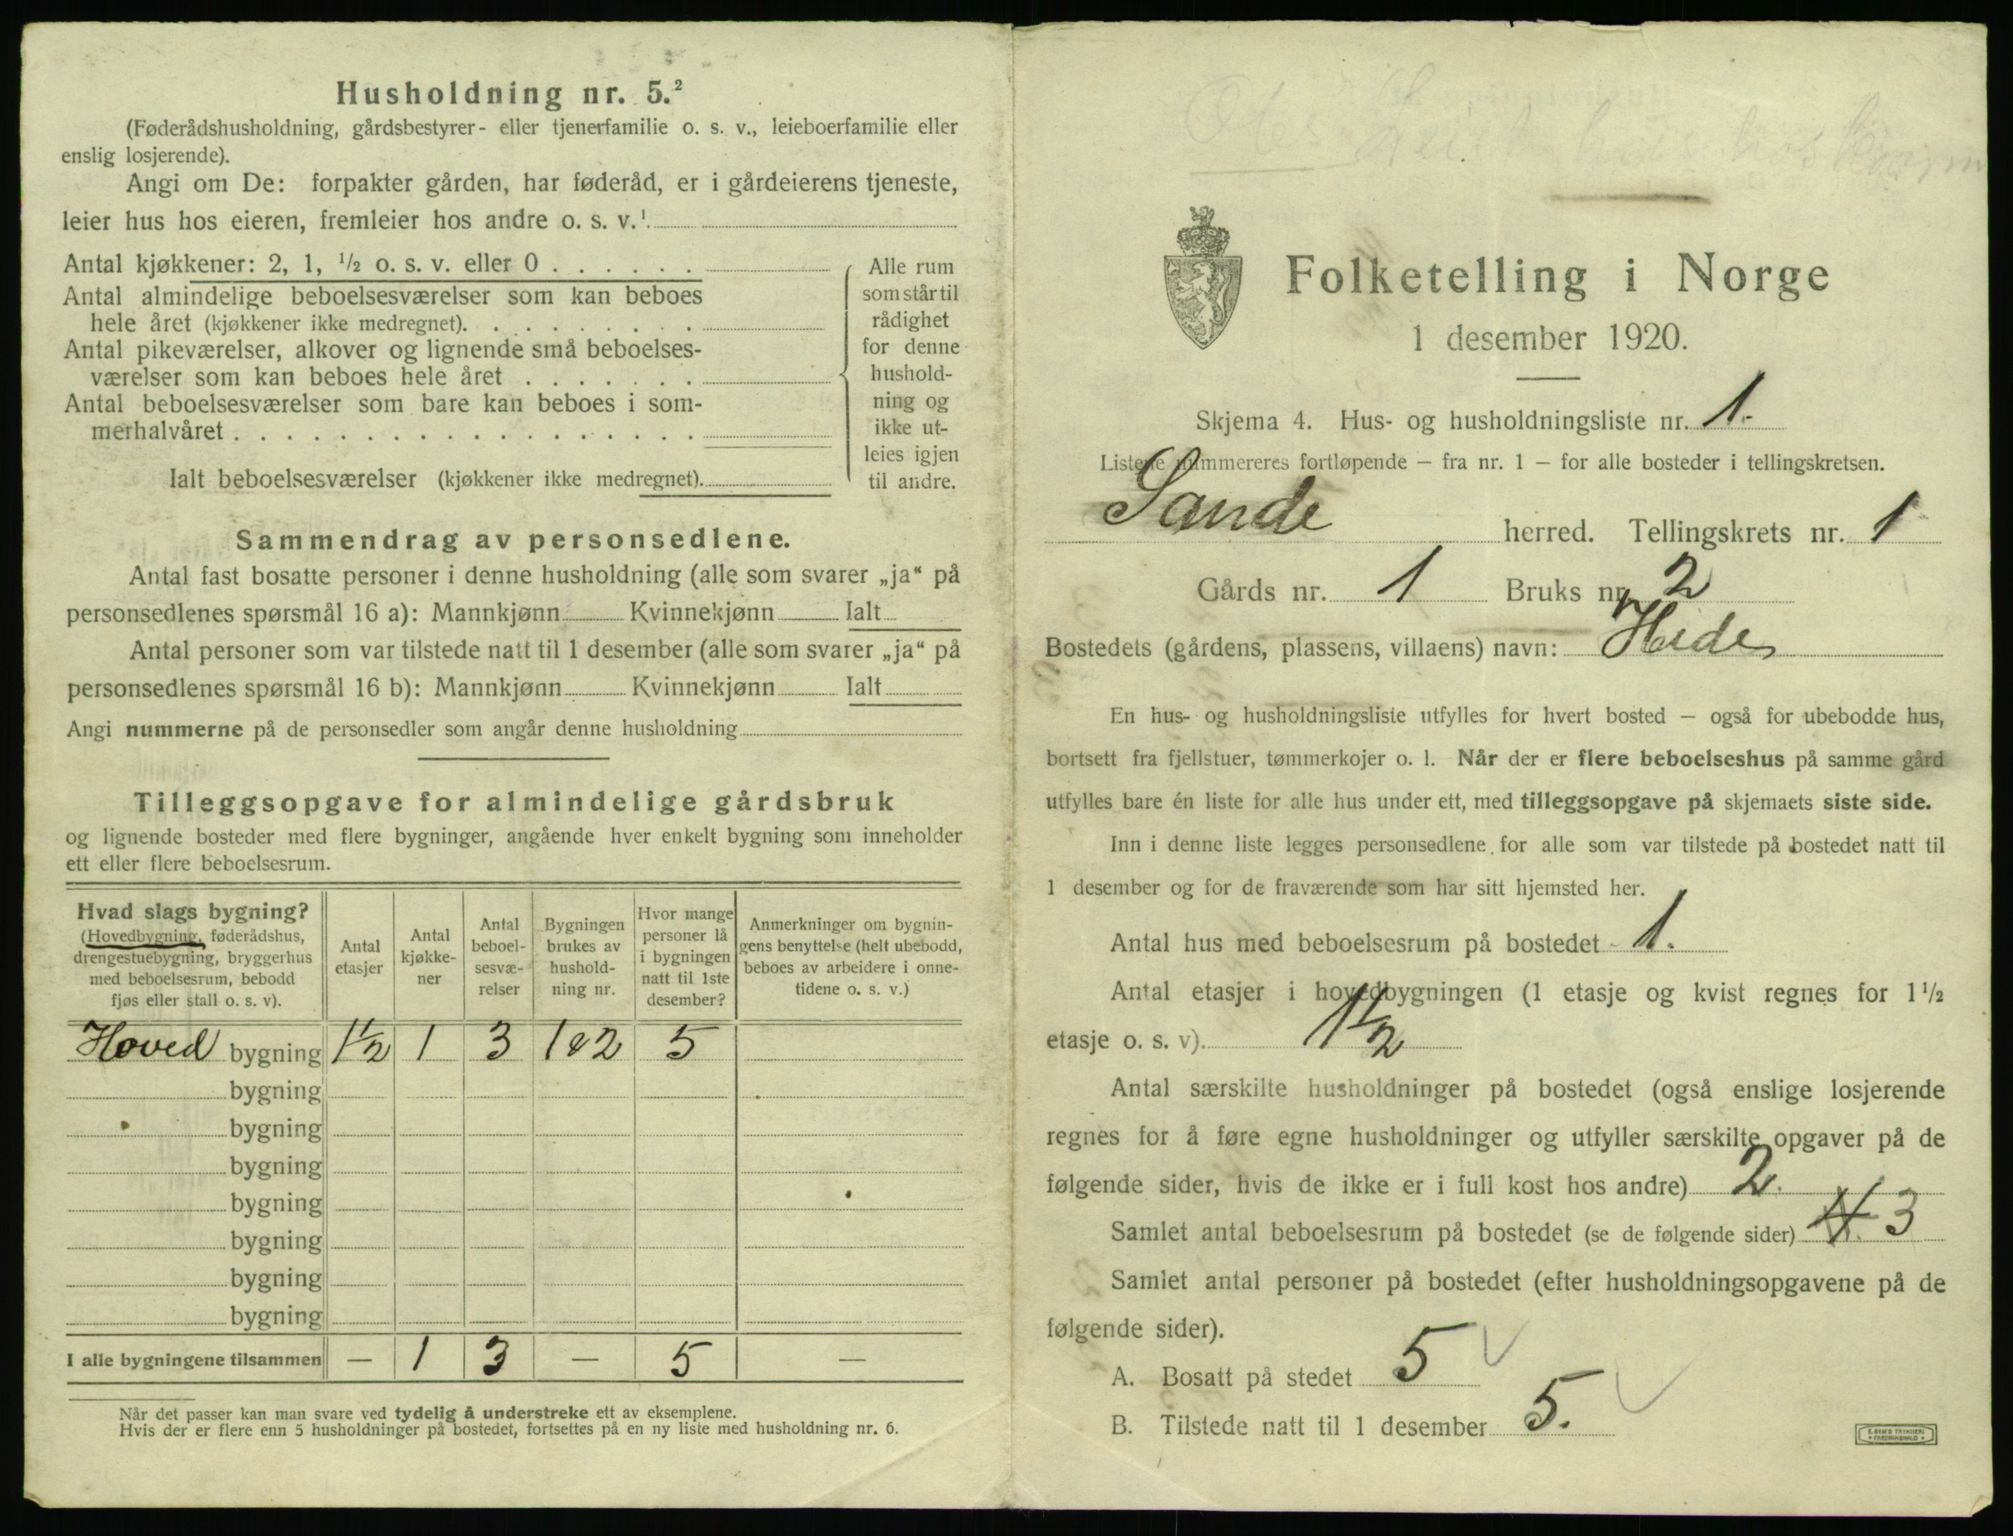 Husholdning nr. 5.²
(Føderådshusholdning, gårdsbestyrer- eller tjenerfamilie o. s. v., leieboerfamilie eller
enslig losjerende).
Angi om De: forpakter gården, har føderåd, er i gårdeierens tjeneste,
leier hus hos eieren, fremleier hos andre o. s. v.¹
Antal kjøkkener: 2, 1, ½ o. s. v. eller 0
Antal almindelige beboelsesværelser som kan beboes
hele året (kjøkkener ikke medregnet).
Antal pikeværelser, alkover og lignende små beboelses-
værelser som kan beboes hele året
Antal beboelsesværelser som bare kan beboes i som-
merhalvåret
Ialt beboelsesværelser (kjøkkener ikke medregnet).
Alle rum
som står til
rådighet
for denne
hushold-
ning og
ikke ut-
leies igjen
til andre.
Sammendrag av personsedlene.
Antal fast bosatte personer i denne husholdning (alle som svarer „ja“ på
personsedlenes spørsmål 16 a): Mannkjønn Kvinnekjønn Ialt
Antal personer som var tilstede natt til 1 desember (alle som svarer „ja“ på
personsedlenes spørsmål 16 b): Mannkjønn Kvinnekjønn Ialt
Angi nummerne på de personsedler som angår denne husholdning
Tilleggsopgave for almindelige gårdsbruk
og lignende bosteder med flere bygninger, angående hver enkelt bygning som inneholder
ett eller flere beboelsesrum.
Hvad slags bygning?
(Hovedbygning, føderådshus,
drengestuebygning, bryggerhus
med beboelsesrum, bebodd
fjøs eller stall o. s. v).
Antal
etasjer
Antal
kjøkke-
ner
Antal
beboel-
sesvæ-
relser
Bygningen
brukes av
hushold-
ning nr.
Hvor mange
personer lå
i bygningen
natt til 1ste
desember?
Anmerkninger om bygnin-
gens benyttelse (helt ubebodd,
beboes av arbeidere i onne-
tidene o. s. v.)
Hoved bygning 1½ 1 3 1&2 5
bygning
bygning
bygning
bygning
bygning
bygning
bygning
I alle bygningene tilsammen — 1 3 — 5 —
Når det passer kan man svare ved tydelig å understreke ett av eksemplene.
Hvis der er flere enn 5 husholdninger på bostedet, fortsettes på en ny liste med husholdning nr. 6.
Folketelling i Norge
1 desember 1920.
Skjema 4. Hus- og husholdningsliste nr. 1.
Listene nummereres fortløpende — fra nr. 1 — for alle bosteder i tellingskretsen.
Sande herred. Tellingskrets nr. 1
Gårds nr. 1 Bruks nr. 2
Bostedets (gårdens, plassens, villaens) navn: Heide
En hus- og husholdningsliste utfylles for hvert bosted — også for ubebodde hus,
bortsett fra fjellstuer, tømmerkojer o. l. Når der er flere beboelseshus på samme gård
utfylles bare én liste for alle hus under ett, med tilleggsopgave på skjemaets siste side.
Inn i denne liste legges personsedlene for alle som var tilstede på bostedet natt til
1 desember og for de fraværende som har sitt hjemsted her.
Antal hus med beboelsesrum på bostedet 1.
Antal etasjer i hovedbygningen (1 etasje og kvist regnes for 1½
etasje o. s. v). 1½
Antal særskilte husholdninger på bostedet (også enslige losjerende
regnes for å føre egne husholdninger og utfyller særskilte opgaver på de
følgende sider, hvis de ikke er i full kost hos andre) 2.
Samlet antal beboelsesrum på bostedet (se de følgende sider) 4. 3
Samlet antal personer på bostedet (efter husholdningsopgavene på de
følgende sider).
A. Bosatt på stedet 5
B. Tilstede natt til 1 desember 5.